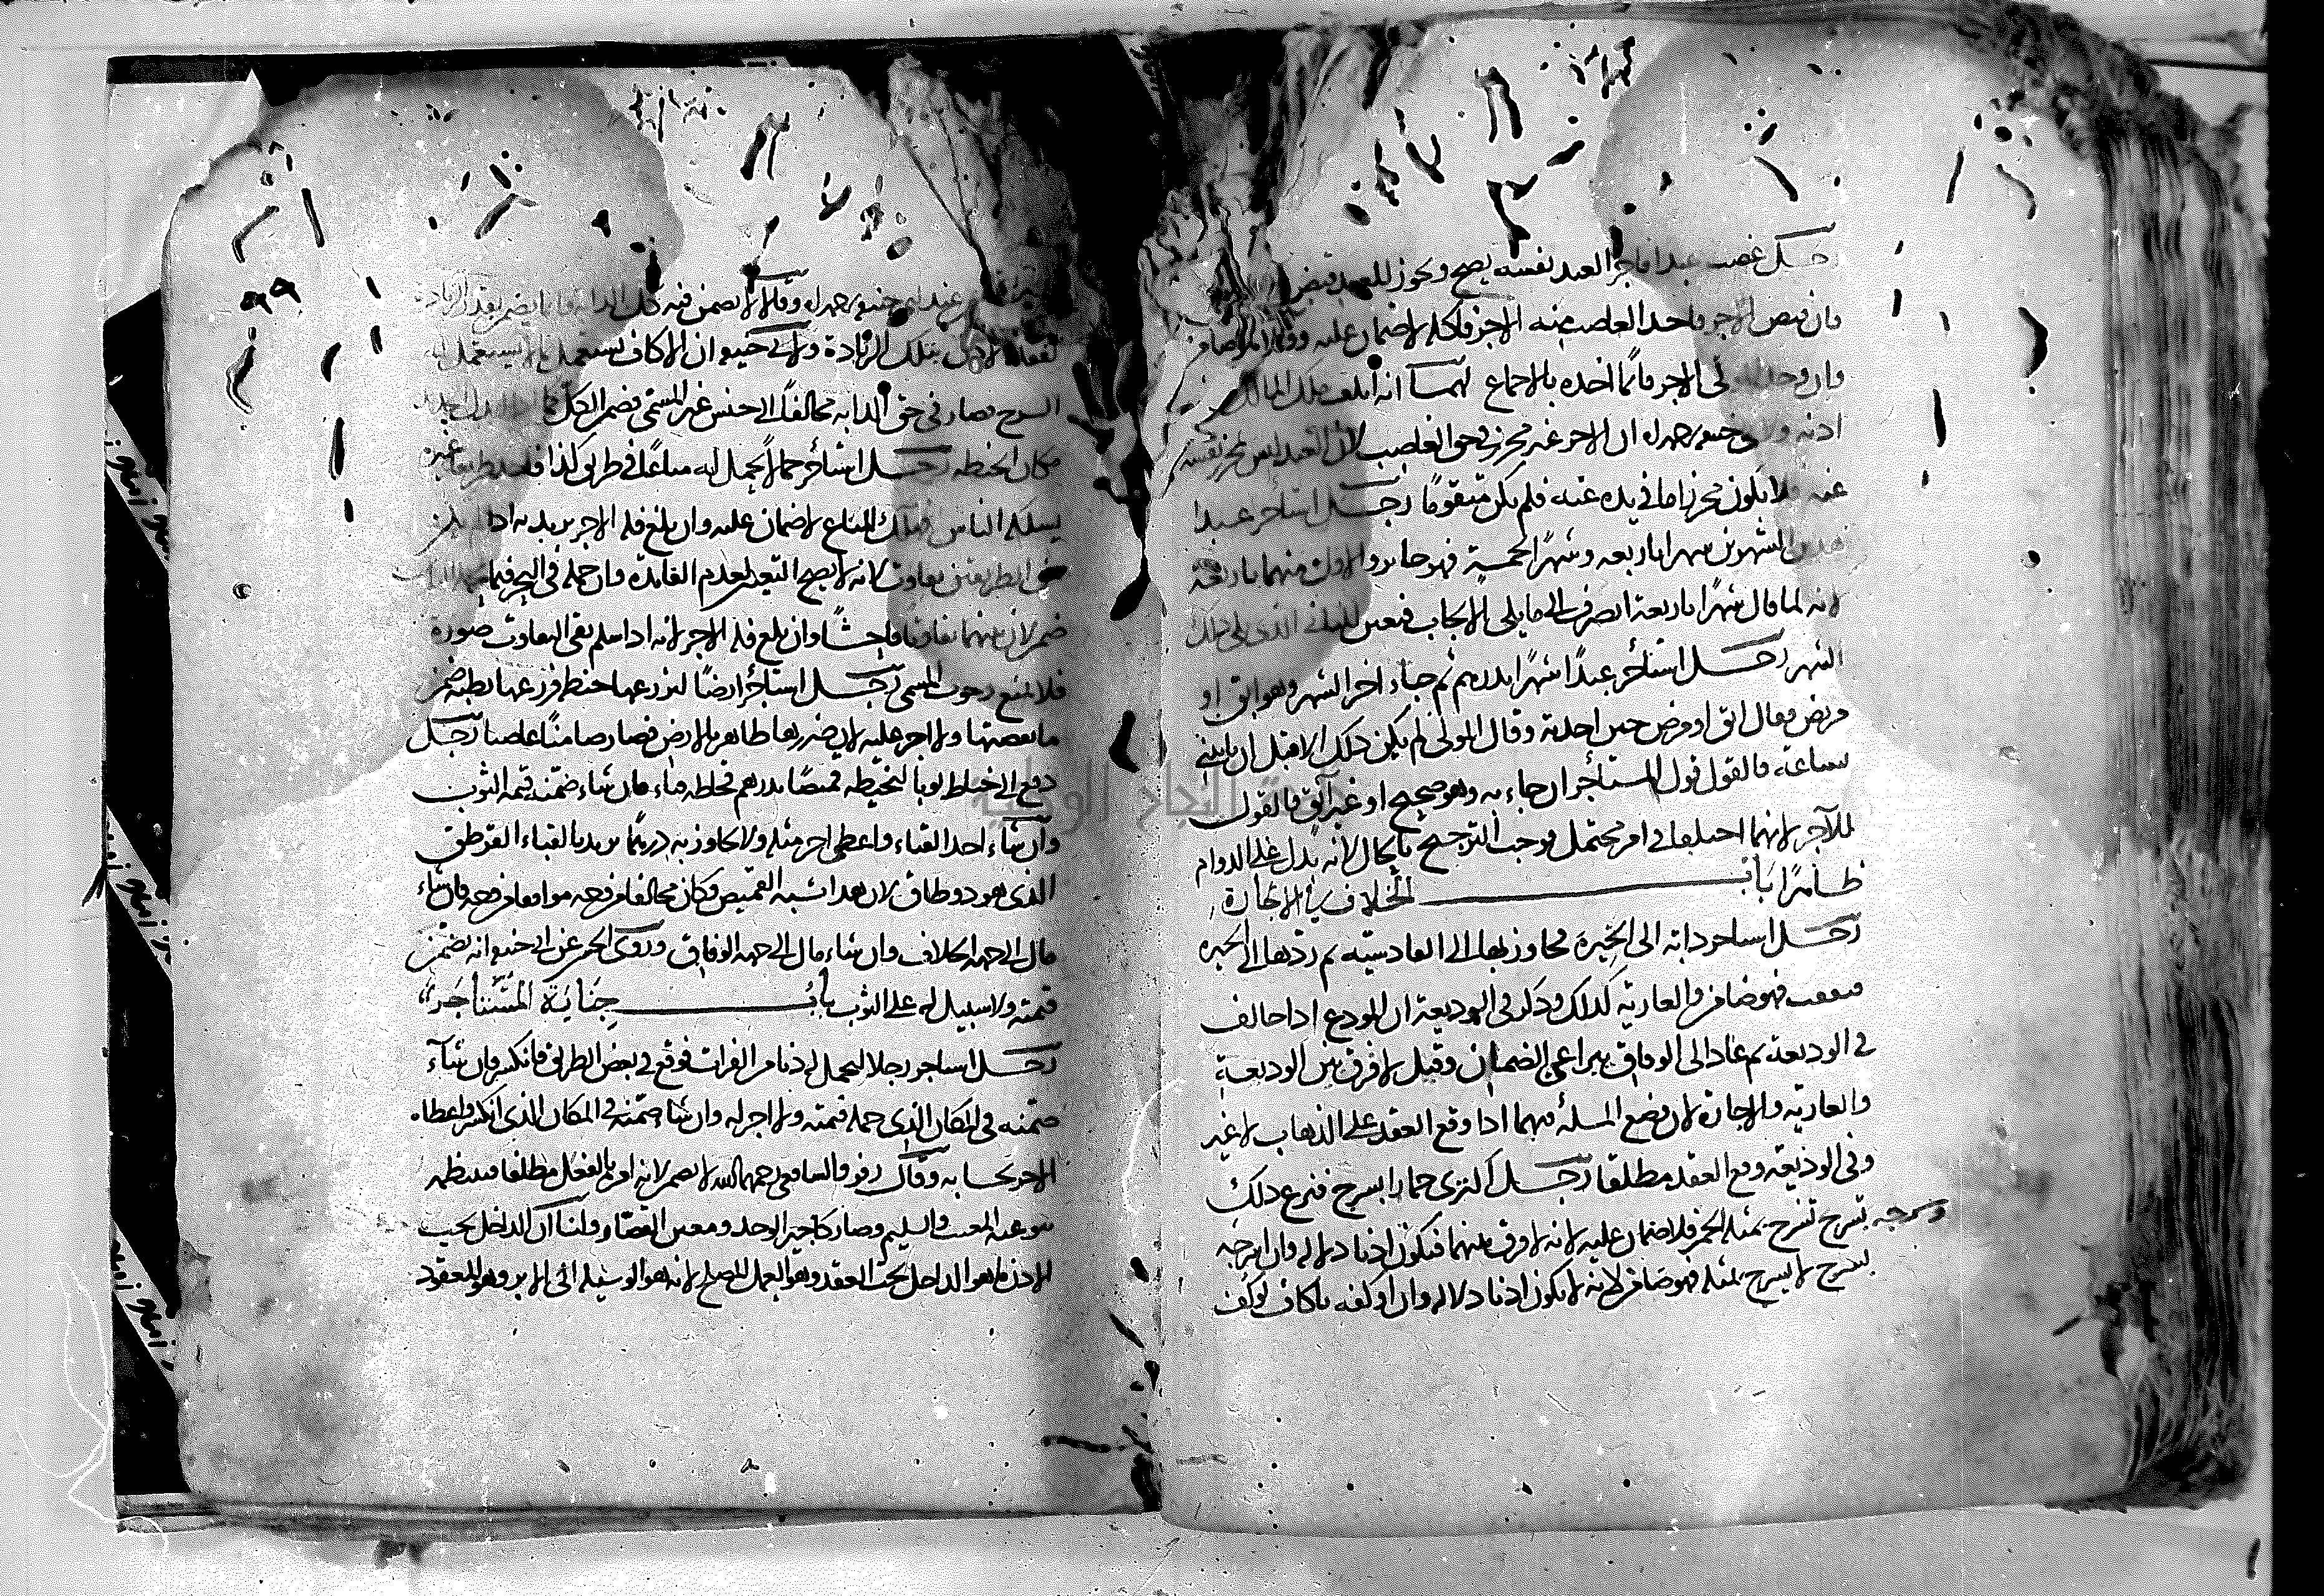 رجل غصب عبدا فاجر العبد نفسه يصح ويجوز للعبد قبض
فان قبض الاجر فاخذ الغاصب منه الاجر فاكله لا ضمان عليه وقالا هو ضامن
وان وجد المولى الاجر قائما اخذه بالاجماع لهما انه اتلف ملك المالك
اذنه ولابي حنيفة رحمه الله ان الاجر غير محرز في حق الغاصب لان العبد ليس بمحرز نفسه
عنه فلا يكون محرزا ما في يده عنه فلم يكن متقوما رجل استأجر عبدا
هذين الشهرين شهرا باربعة وشهرا بخمسة فهو جائز والاول منهما باربعة
لانه لما قال شهرا باربعة انصرف الى ما يلي الايجاب فتعين للثاني الذي يلي ذلك
الشهر رجل استأجر عبدا شهرا بدرهم ثم جاء اخر الشهر وهو ابق او
مريض فقال ابق او مرض حين اخذته وقال المولى لم يكن ذلك الا قبل ان ياتيني
بساعة فالقول قول المستأجر ان جاء به وهو صحيح او غير آبق فالقول
للآجر لانهما اختلفا في امر محتمل فوجب الترجيح بالحال لانه يدل على الدوام
ظاهرا باب الخلاف في الاجارة
رجل استاجر دابة الى الحيرة فجاوز بها الى القادسية ثم ردها الى الحيرة
فنفقت فهو ضامن والعارية كذلك وذكر في الوديعة ان المودع اذا خالف
في الوديعة ثم عاد الى الوفاق برا عن الضمان وقيل لا فرق بين الوديعة
والعارية والاجارة لان وضع المسئلة فيهما اذا وقع العقد على الذهاب لا غير
وفي الوديعة وقع العقد مطلقا رجل اكترى حمارا بسرج فنزع ذلك
واسرجه بسرج تسرج بمثله الحمر فلا ضمان عليه لانه لا فرق بينهما فيكون اذنا دلالة وان اسرجه
بسرج لا يسرج بمثله فهو ضامن لانه لا يكون اذنا دلالة وان اوكفه باكاف يوكف
عند ابي حنيفة رحمه الله وقالا لا يضمن فيه كل الدابة وانما يضمن بقدر الزيادة
بتلك الزيادة ولابي حنيفة ان الاكاف يستعمل لما لا يستعمل له
السرج فصار في حق الدابة مخالفا الى جنس غير المسمى فضمن الكل
مكان الحنطة رجل استأجر حمالا يحمل له متاعا في طريق كذا فاخذ طريقا غيره
يسلكه الناس فهلك المتاع لا ضمان عليه وان بلغ فله الاجر يريد به اذا لم يكن
بين الطريقين تفاوت لانه لا يصح التقييد لعدم الفائدة وان حمله في البحر فيما
ضمن لان بينهما تفاوتا فاحشا وان بلغ فله الاجر لانه اذا سلم بقي التفاوت صورة
فلا يمنع وجوب المسمى رجل استأجر ارضا ليزرعها حنطة فزرعها رطبة ضمن
ما نقصها ولا اجر عليه لان ضررها ظاهر بالارض فصار ضامنا غاصبا رجل
دفع الى خياط ثوبا ليخيطه قميصا بدرهم فخاطه قباء فان شاء ضمنه قيمة الثوب
وان شاء اخذ القباء واعطى اجر مثله ولا يجاوز به درهما يريد بالقباء القرطق
الذي هو ذو طاق لان هذا اشبه القميص فكان مخالفا من وجه موافقا من وجه فان شاء
مال الى جهة الخلاف وان شاء مال الى جهة الوفاق وروى الحسن عن ابي حنيفة انه يضمن
قيمته ولا سبيل له على الثوب باب جناية المستأجر
رجل استاجر رجلا ليحمل له دنا من الفرات فوقع في بعض الطريق فانكسر فان شاء
ضمنه في المكان الذي حمله قيمته ولا اجر له وان شاء ضمنه في المكان الذي انكسر واعطاه
الاجر بحسابه وقال زفر والشافعي رحمهما الله لا يضمن لانه امر بالفعل مطلقا فينتظم
نوعيه المعيب والسليم وصار كاجير الوحد ومعين القصار ولنا ان الداخل تحت
الاذن ما هو الداخل تحت العقد وهو العمل المصلح لانه هو الوسيلة الى الاثر وهو المعقود